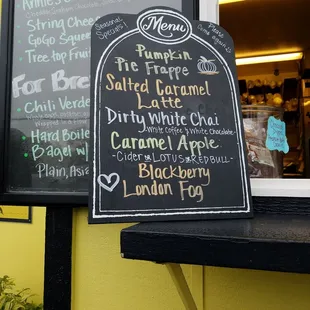 Annie's
String Cheese
GoGo Squee
Tree top Fruit
For Br
Chili Verde
Hard Boile
Bagel w/
Plain, Asia
Seasonal
Specials!
Menu
Please
Pumpkin
Pie Frappe
Salted Caramel
Latte
Dirty White Chai
White Coffee & White Chocolate
Caramel Apple
-Cider or LOTUS or REDBULL-
Blackberry
London Fog